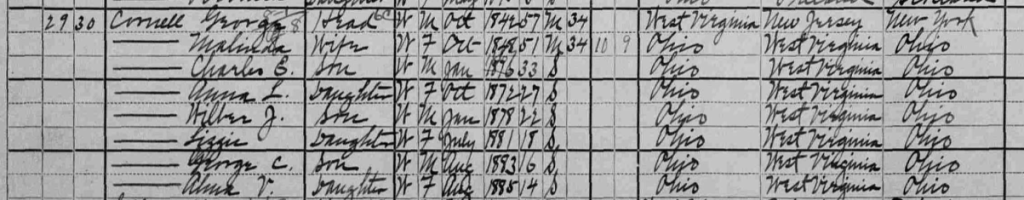 29 30 Cornell George S Head W M Oct 1842 57 M 34 West Virginia New Jersey New York
—— Malinda Wife W F Oct 1848 51 M 34 10 9 Ohio West Virginia Ohio
—— Charles E. Son W M Jan 33 S Ohio West Virginia Ohio
—— Anna L. Daughter W F Oct 1872 27 S Ohio West Virginia Ohio
—— Wilber J. Son W M Jan 1878 22 S Ohio West Virginia Ohio
—— Lizzie Daughter W F July 1881 18 S Ohio West Virginia Ohio
—— George C. Son W M Aug 1883 16 S Ohio West Virginia Ohio
—— Alma V. Daughter W F Aug 1885 14 S Ohio West Virginia Ohio